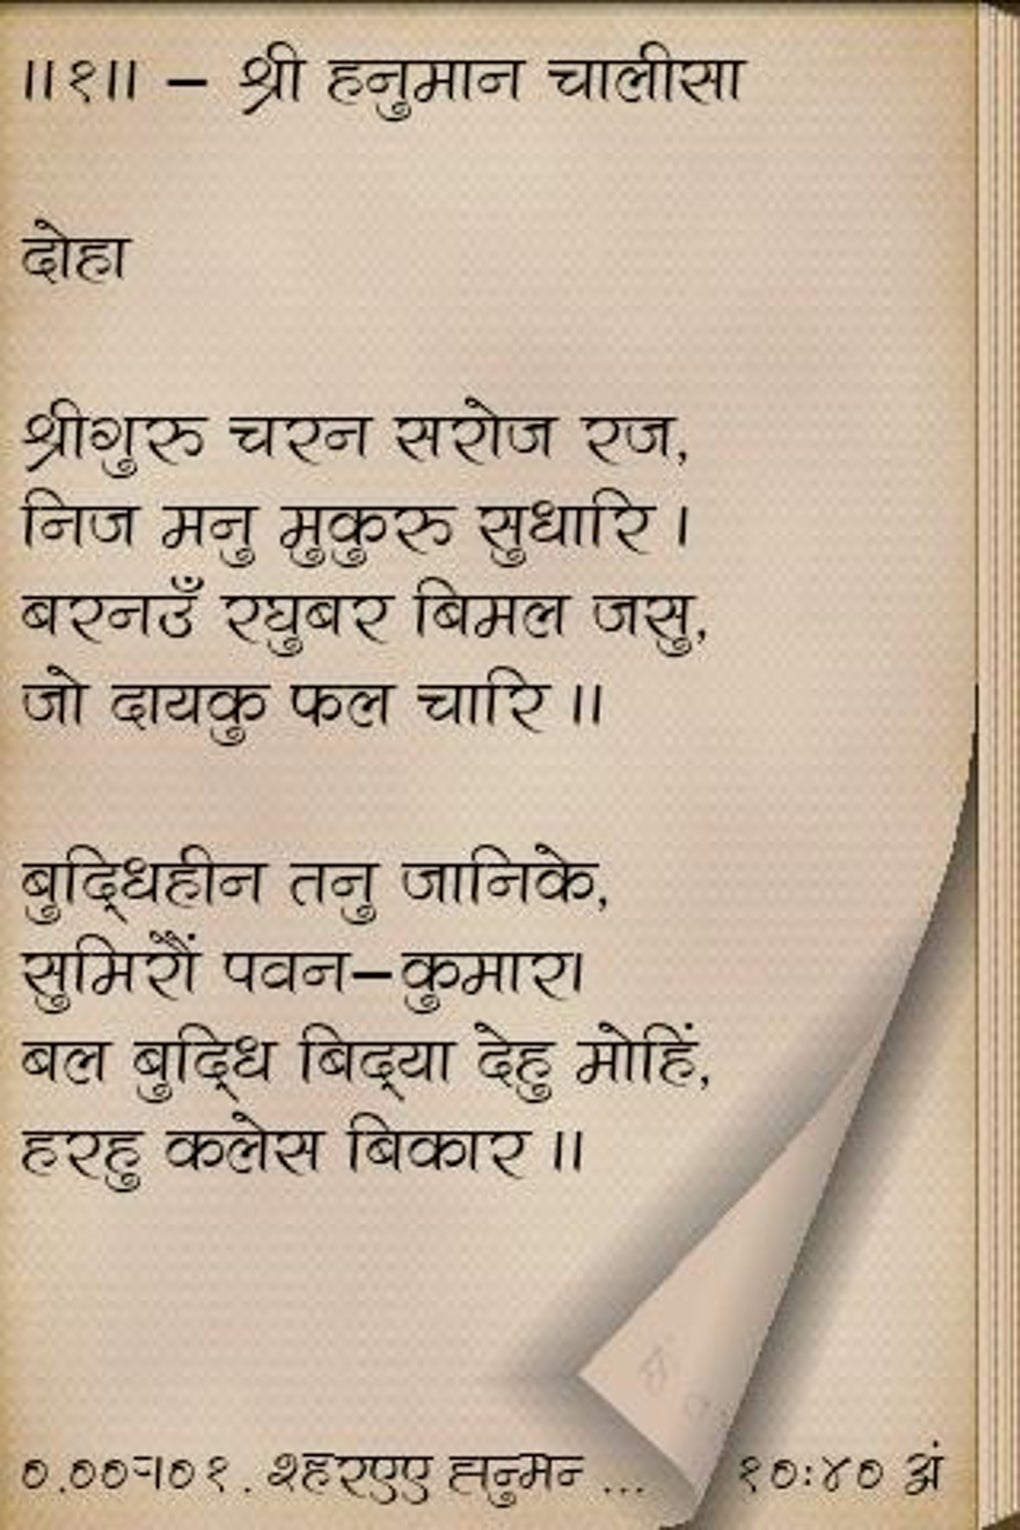 ॥१॥ – श्री हनुमान चालीसा
दोहा
श्रीगुरु चरन सरोज रज,
निज मनु मुकुरु सुधारि ।
बरनउँ रघुबर बिमल जसु,
जो दायकु फल चारि ॥
बुद्धिहीन तनु जानिके,
सुमिरौं पवन–कुमार।
बल बुद्धि बिद्या देहु मोहिं,
हरहु कलेस बिकार ॥
१०:४० अं